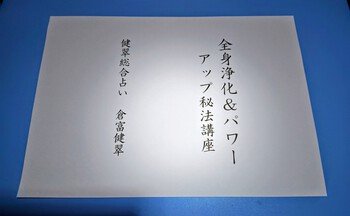 全身浄化＆パワー
アップ秘法講座
健翠総合占い　倉富健翠